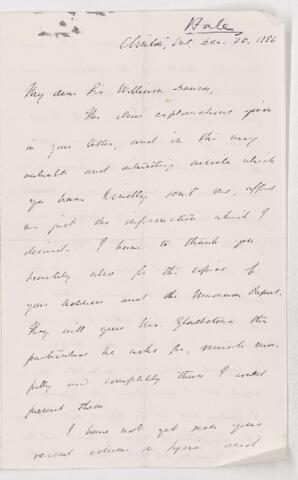 Hale
Clinton, Ont. Dec. 30, 1886
My dear Sir William Dawson,
The clear explanations given
in your letter, and in the very
valuable and interesting article which
you have kindly sent me, afford
me just the information which I
desired. I have to thank you
heartily also for the copies of
your address and the Museum Report.
They will give Mr. Gladstone the
particulars he asks for, much more
fully and completely than I could
present them.
I have not yet seen your
recent volume on